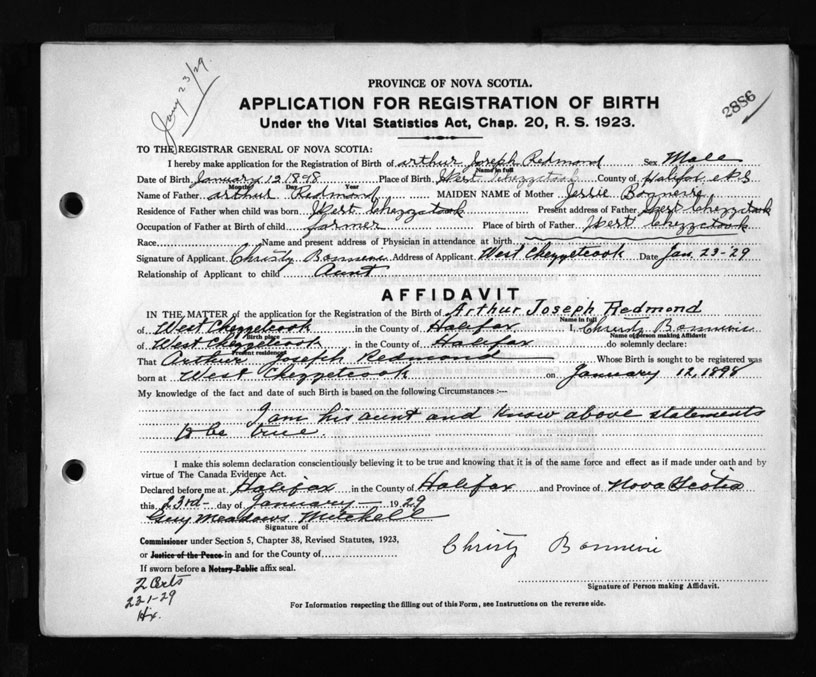 Jany 23/29.
2886
PROVINCE OF NOVA SCOTIA.
APPLICATION FOR REGISTRATION OF BIRTH
Under the Vital Statistics Act, Chap. 20, R. S. 1923.
TO THE REGISTRAR GENERAL OF NOVA SCOTIA:
I hereby make application for the Registration of Birth of Arthur Joseph Redmond Sex Male
Name in full
Date of Birth January 12 1898 Place of Birth West Chezzetcook County of Halifax N.S
Month Day Year
Name of Father Arthur Redmond MAIDEN NAME of Mother Jessie
Residence of Father when child was born West Chezzetcook Present address of Father West Chezzetcook
Occupation of Father at Birth of child farmer Place of birth of Father West Chezzetcook
Race Name and present address of Physician in attendance at birth
Signature of Applicant Christy Address of Applicant West Chezzetcook Date Jan. 23-'29
Relationship of Applicant to child Aunt
AFFIDAVIT
IN THE MATTER of the application for the Registration of the Birth of Arthur Joseph Redmond
Name in full
of West Chezzetcook in the County of Halifax I, Christy
Birth place Name of person making Affidavit
of West Chezzetcook in the County of Halifax do solemnly declare:
Present residence
That Arthur Joseph Redmond Whose Birth is sought to be registered was
born at West Chezzetcook on January 12, 1898
My knowledge of the fact and date of such Birth is based on the following Circumstances :—
I am his aunt and know above statements
to be true.
I make this solemn declaration conscientiously believing it to be true and knowing that it is of the same force and effect as if made under oath and by
virtue of The Canada Evidence Act.
Declared before me at Halifax in the County of Halifax and Province of Nova Scotia
this 23rd day of January 1929
Guy Meadows Mitchell
Signature of
Commissioner under Section 5, Chapter 38, Revised Statutes, 1923,
or Justice of the Peace in and for the County of
If sworn before a Notary Public affix seal.
Christy
Signature of Person making Affidavit.
2 Certs
22-1-29
Hx.
For Information respecting the filling out of this Form, see Instructions on the reverse side.